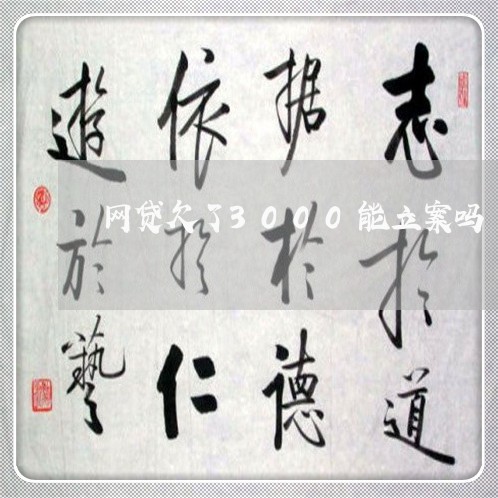 志於道
据於德
依於仁
遊於藝
网贷欠了3000能立案吗